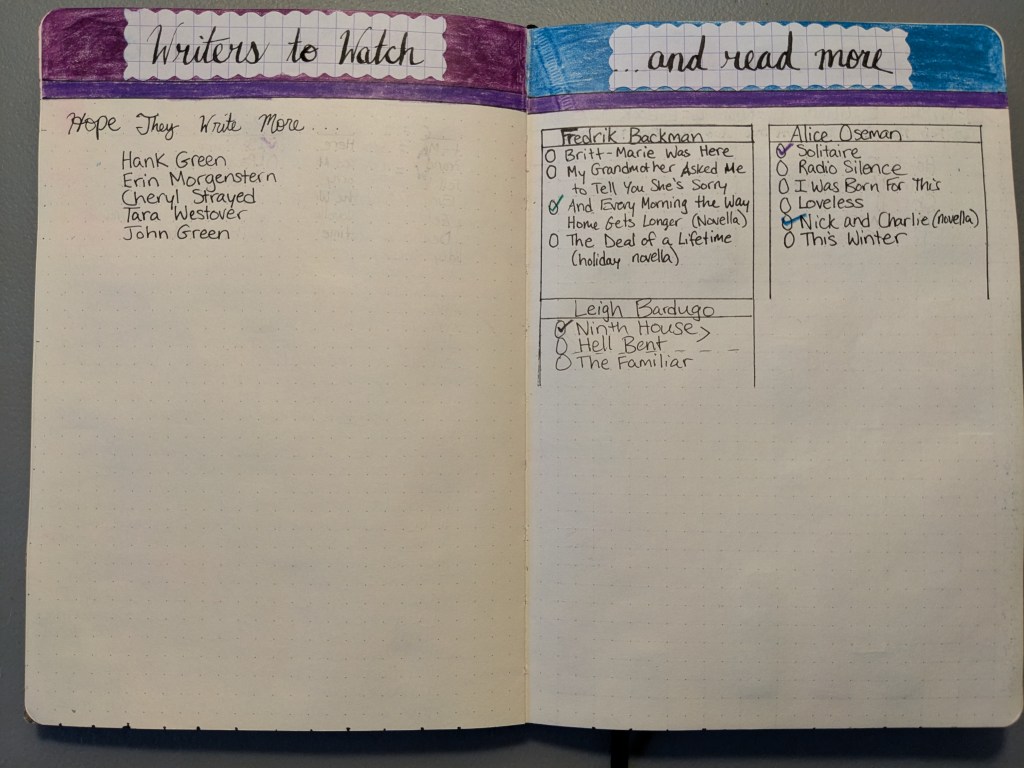 Writers to Watch
Hope They Write More....
Hank Green
Erin Morgenstern
Cheryl Strayed
Tara Westover
John Green
...and read more
Fredrik Backman
Britt-Marie Was Here
My Grandmother Asked Me
to Tell You She's Sorry
And Every Morning the Way
Home Gets Longer (Novella)
The Deal of a Lifetime
(holiday novella)
Leigh Bardugo
Ninth House
Hell Bent
The Familiar
Alice Oseman
Solitaire
Radio Silence
I Was Born For This
Loveless
Nick and Charlie (novella)
This Winter